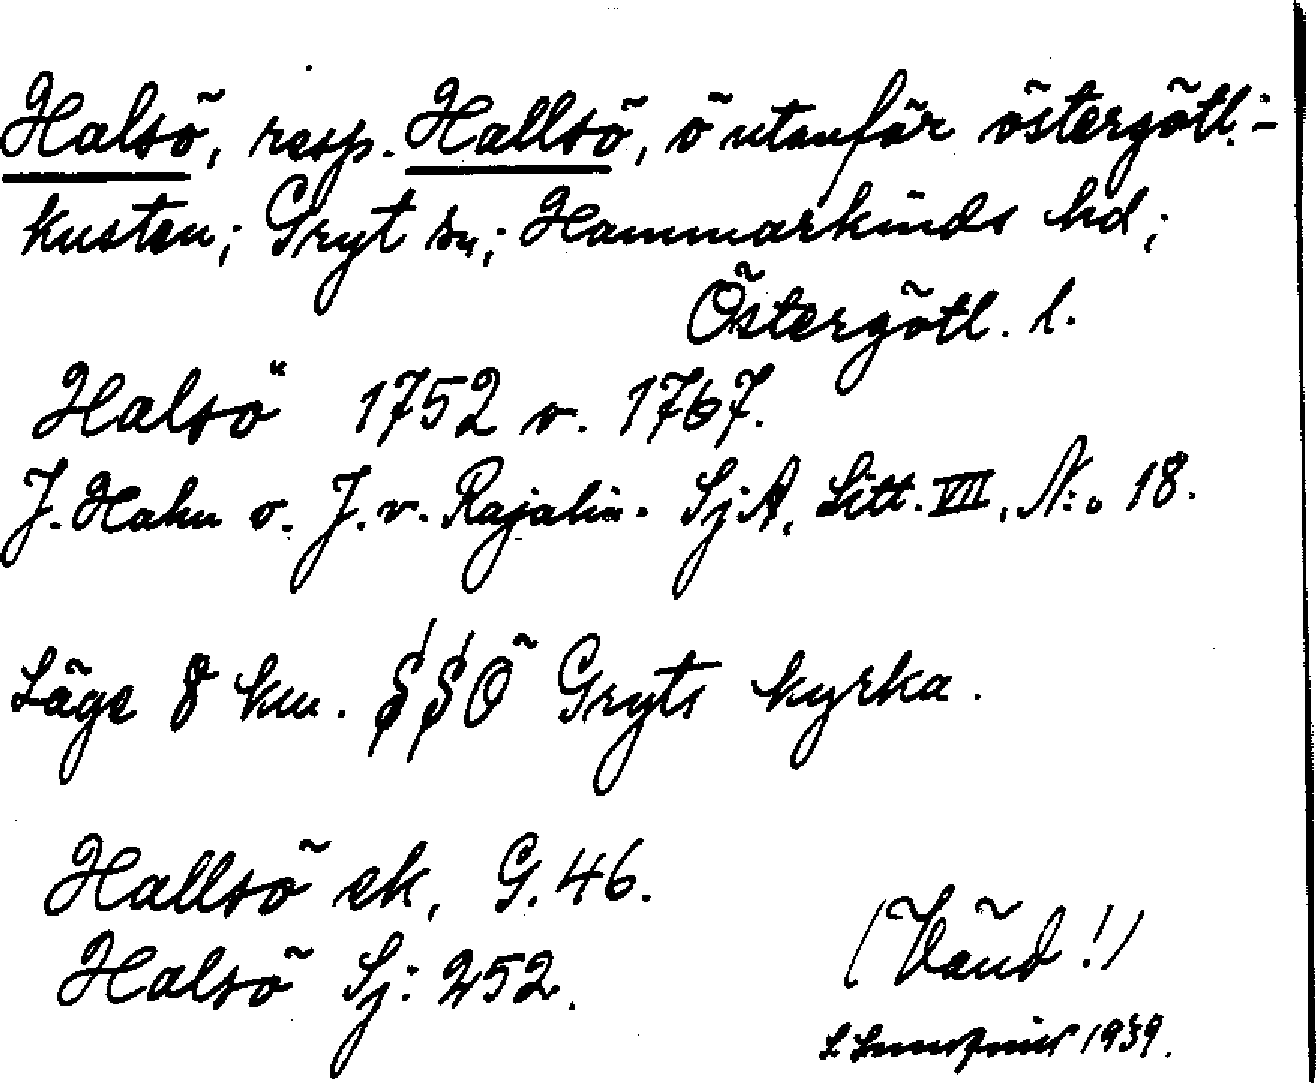 Halsö, resp. Hallsö, ö utanför östergötl:-
kusten; Gryt sn; Hammarkinds hd;
Östergötl. l.
Halsö 1752 o. 1767.
J. Hahn o. J. v. Rajalin. Sj:A, Litt. VII, N:o 18.
Läge 8 km. SSÖ Gryts kyrka.
Hallsö ek, G. 46.
Halsö Sj: 252.
(Vänd!)
1939.